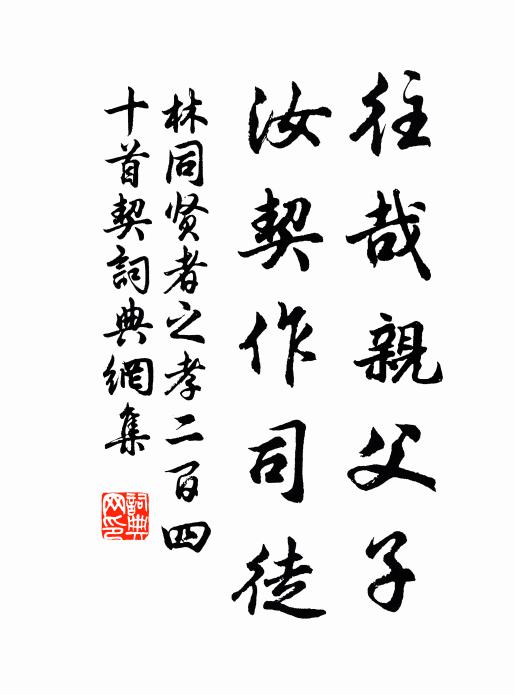 往哉親父子
汝契作司徒
林同贤者之孝二百四
十首契詞典網集
詞典
网印